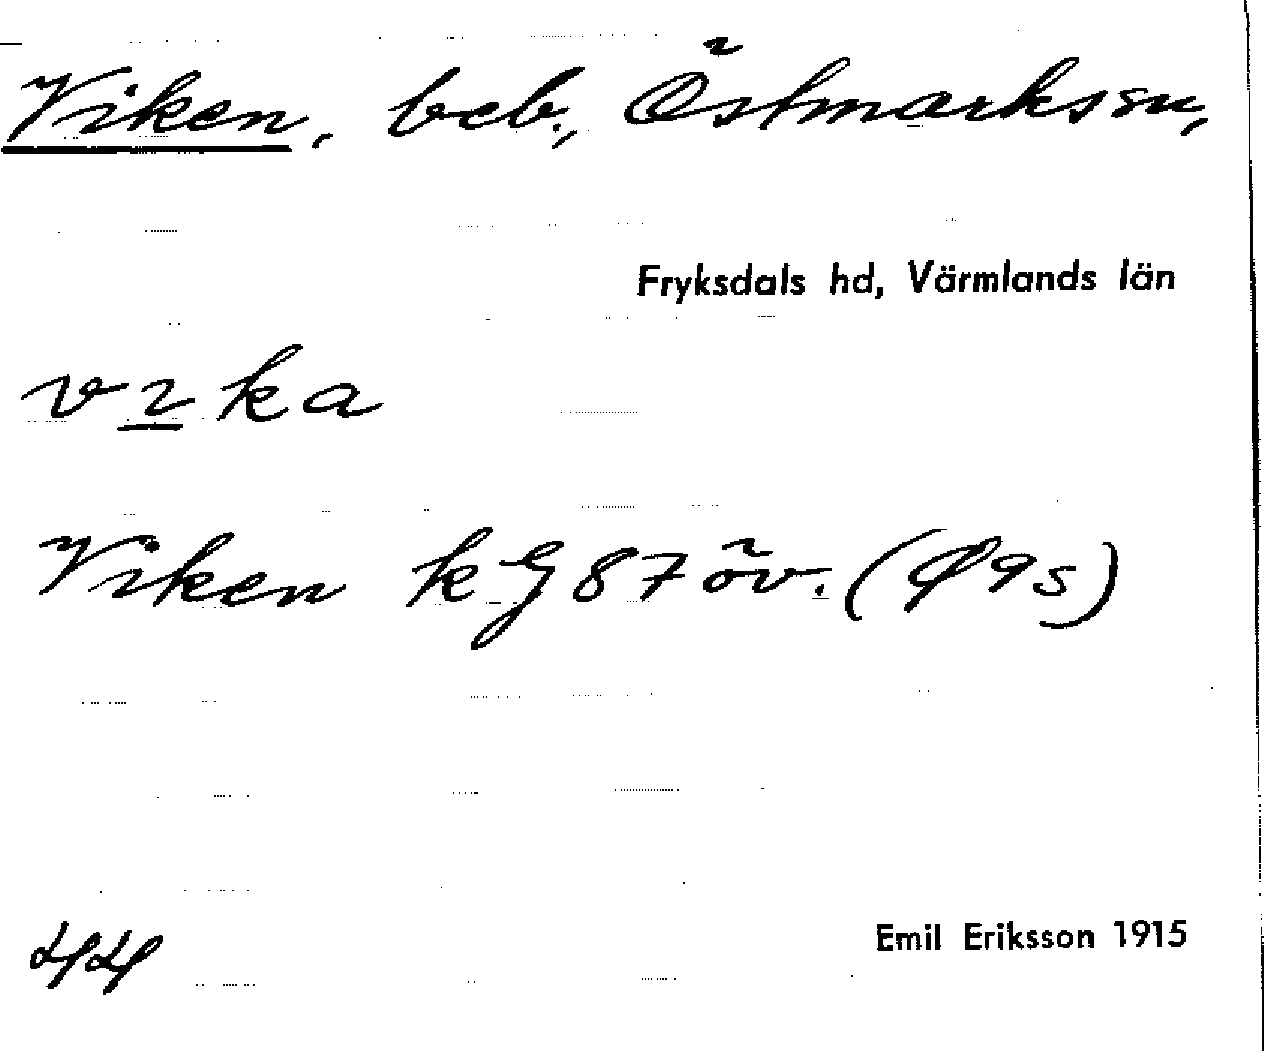 Viken, beb., Östmarks sn,
Fryksdals hd, Värmlands län
vıka
Viken kG 87 öv. (Ø9s)
44
Emil Eriksson 1915